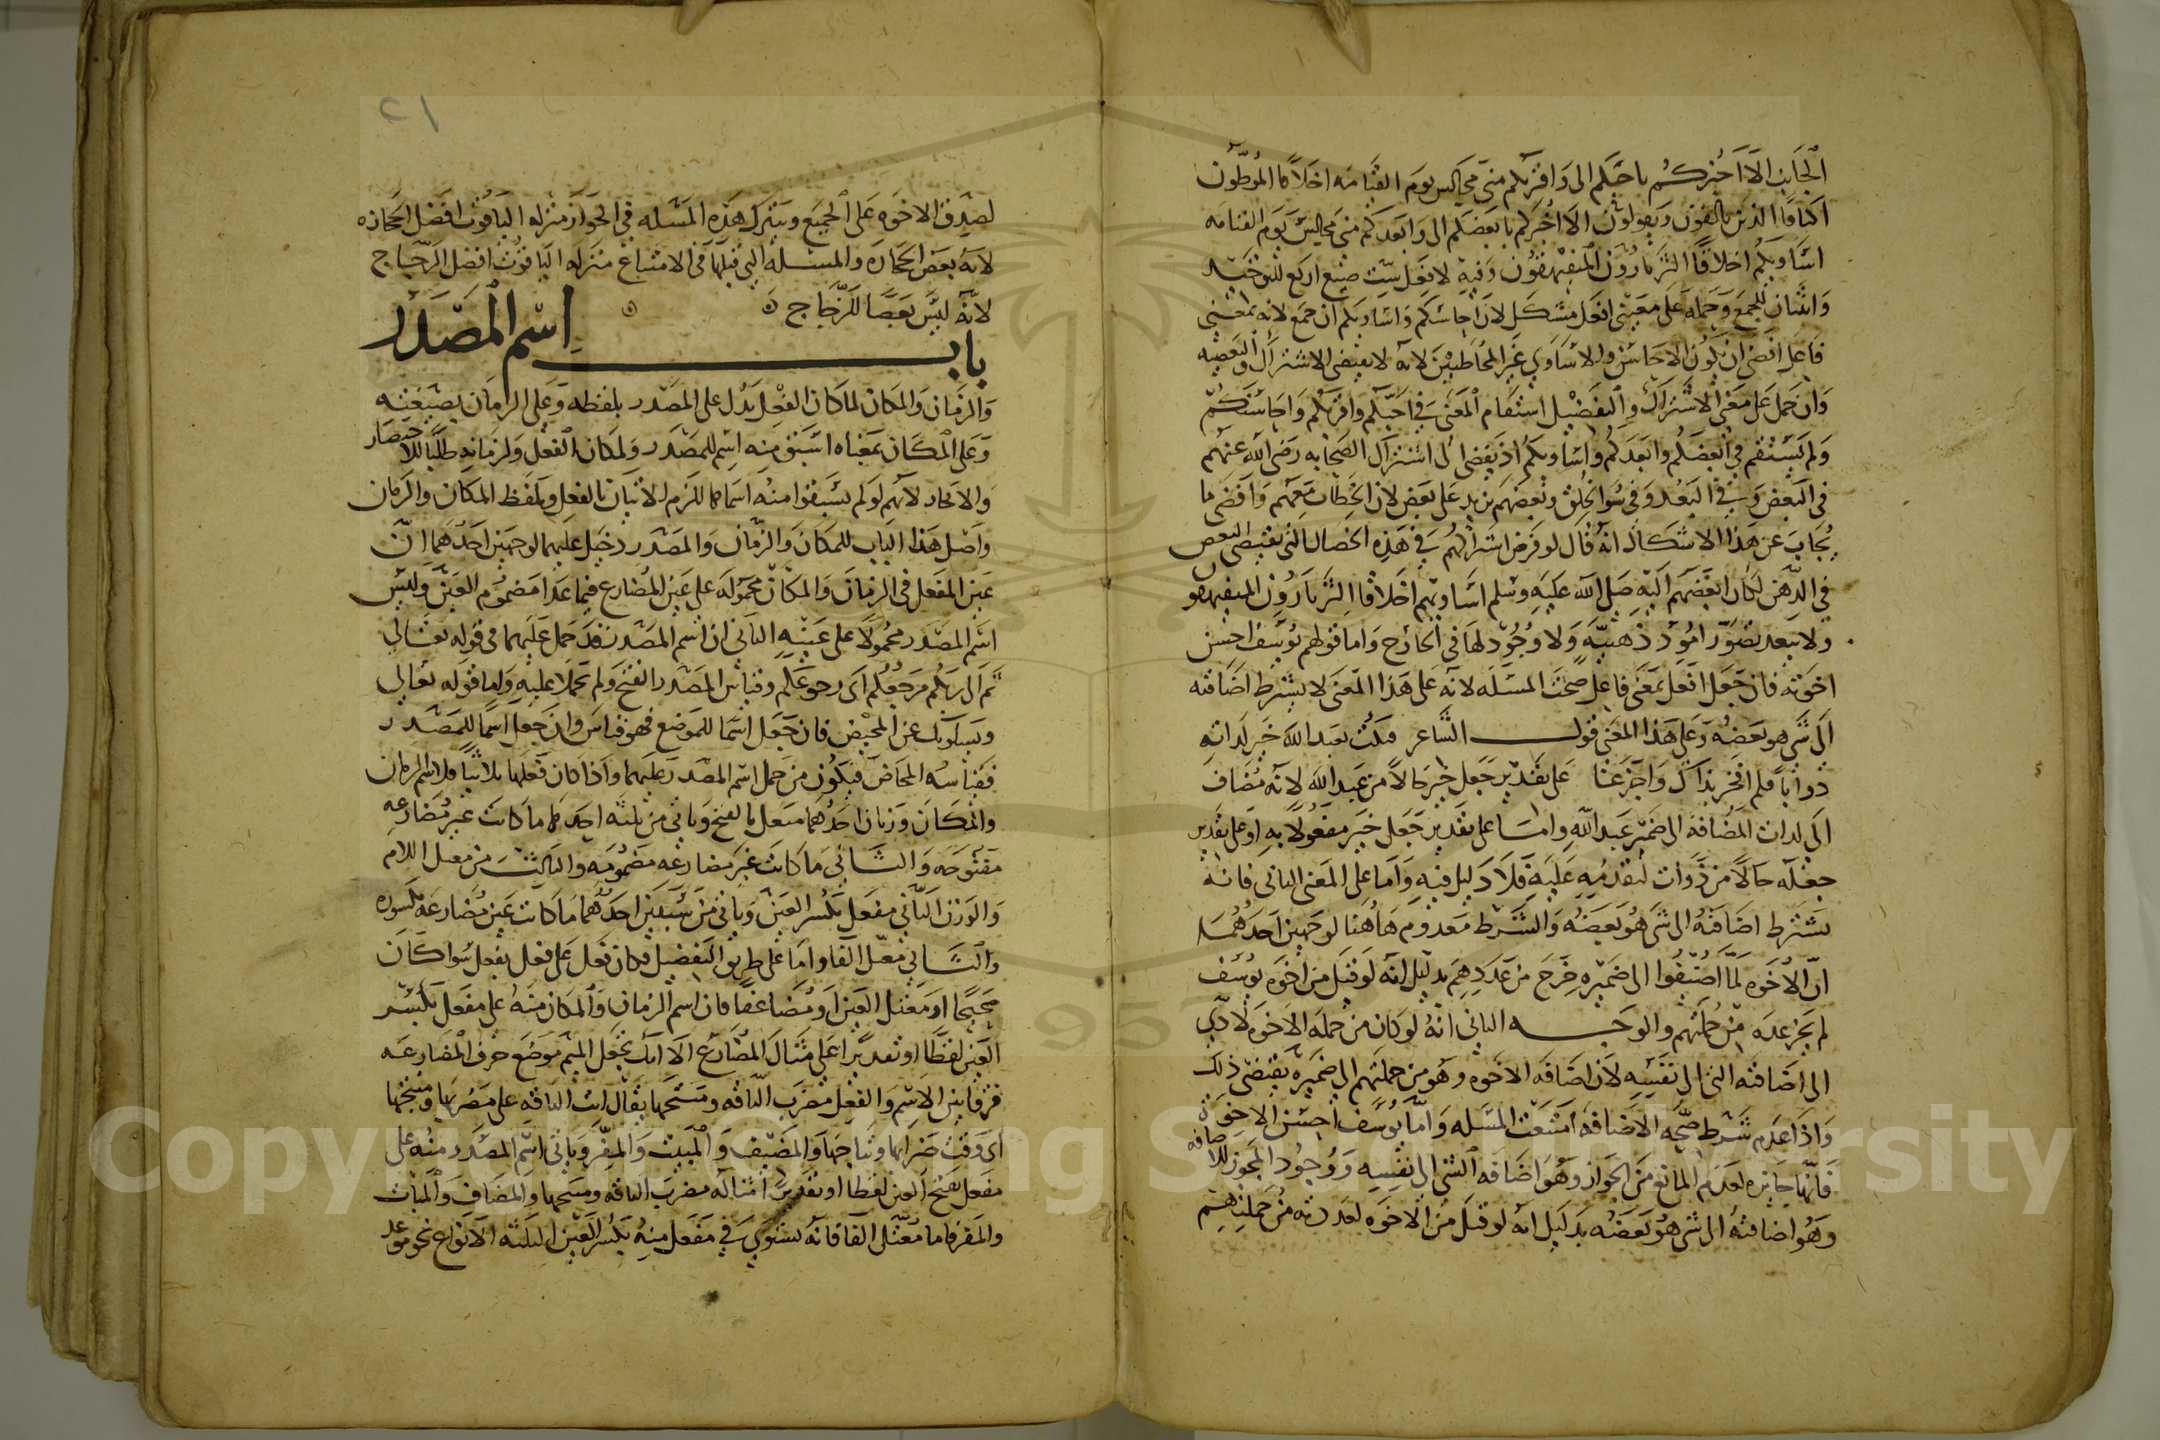 الجانبين ألا أخبركم باحبكم الى واقربكم منى مجالس يوم القيامه اخلاقا الموطون
اكنافا الذين يالفون ويولفون الا اخبركم بابغضكم الى وابعدكم منى مجالس يوم القيامه
اساويكم اخلاقا الثرثارون المتفيهقون وفيه لافعل ست صيغ اربع للتوحيد
واثنان للجمع وحمله على معنيى افعل مشكل لان احاسنكم واساويكم ان جمع لانه بمعنى
فاعل اقتضى ان يكون الاحاسن والاساوي غير المخاطبين لانه لا يقتضى الاشتراك والبعضيه
وان حمل على معنى الاشتراك والتفضيل استقام المعنى في احبكم واقربكم واحاسنكم
ولم يستقم في ابغضكم وابعدكم واساويكم اذ يقضى الى اشتراك الصحابه رضى الله عنهم
في البغض وفي البعد وفي سوا الخلق وبعضهم يزيد على بعض لان الخطاب معهم واقصى ما
يجاب عن هذا الاشكال انه قال لو فرض اشتراكهم في هذه الخصال التى تقتضى البغض
في الذهن لكان ابغضهم اليه صلى الله عليه وسلم اساويهم اخلاقا الثرثارون المتفيهقو
ولا يبعد تصور امور ذهنيه ولا وجود لها في الخارج واما قولهم يوسف احسن
اخوته فان جعل افعل بمعنى فاعل صحت المسئله لانه على هذا المعنى لا يشترط اضافته
الى شى هو بعضه وعلى هذا المعنى قول الشاعر ملكت بعبد الله خير لداته
ذوابا فلم افخر بذاك واجزعا على تقدير جعل خير حالا من عبد الله لانه مضاف
الى لدات المضافة الى ضمير عبد الله واما على تقدير جعل خير مفعولا به او على تقدير
جعله حالا من ذواب لتقدمه عليه فلا دليل فيه واما على المعنى الثانى فانه
يشترط اضافته الى شى هو بعضه والشرط معدوم هاهنا لوجهين احدهما
ان الاخوه لما اضيفوا الى ضميره خرج من عددهم بدليل انه لو قيل من اخوه يوسف
لم يجز عده من جملتهم والوجه الثانى انه لو كان من جمله الاخوه لادى
الى اضافته الشى الى نفسه لان اضافه الاخوه وهو من جملتهم الى ضميره يقتضى ذلك
واذا عدم شرط صحه الاضافه امتنعت المسله واما يوسف احسن الاخوة
فانها جايزه لعدم المانع من الجواز وهو اضافه الشى الى نفسه ووجود المجوز للاضافه
وهو اضافته الى شى هو بعضه بدليل انه لو قيل من الاخوه لعددته من جملتهم
٢١
لصدق الاخوه على الجميع وينزل هذه المسله في الجواز منزله الياقوت افضل الحجاره
لانه بعض الحجاره والمسله التي قبلها في الامتناع منزله الياقوت افضل الزجاج
لانه ليس بعضا للزجاج
باب اسم المصدر
والزمان والمكان لما كان الفعل يدل على المصدر بلفظه وعلى الزمان بصيغته
وعلى المكان بمعناه اشتق منه اسم للمصدر ولمكان الفعل ولزمانه طلبا للاختصار
والاتحاد لانهم لو لم يشتقوا منه اسما لما للزم الاتيان بالفعل وبلفظ المكان والزمان
واصل هذا الباب للمكان والزمان والمصدر دخيل عليهما لوجهين احدهما ان
عين المفعل في الزمان والمكان محموله على عين المضارع فيما عدا مضموم العين وليس
اسم المصدر محمولا على عينه الثانى ان اسم المصدر قد حمل عليهما في قوله تعالى
ثم الى ربكم مرجعكم اى رجوعكم وقياس المصدر الفتح ولم يحملا عليه واما قوله تعالى
ويسالونك عن المحيض فان جعل اسما للموضع فهو قياس وان جعل اسما للمصدر
فقياسه المحاض فيكون من حمل اسم المصدر عليهما واذا كان فعلها ثلاثيا فلاسم الزمان
والمكان وزنان احدهما مفعل بالفتح وياتى من ثلثه احدها ما كانت عين مضارعه
مفتوحه والثانى ما كانت عين مضارعه مضمومه والثالث من معتل اللام
والوزن الثانى مفعل بكسر العين وياتى من شيئين احدهما ما كانت عين مضارعه مكسوره
والثانى معتل الفا واما على طريق التفضيل فكان فعل على فعل يفعل سوا كان
صحيحا او معتل العين او مضاعفا فان اسم الزمان والمكان منه على مفعل بكسر
العين لفظا او تقديرا على مثال المضارع الا انك تجعل الميم موضع حرف المضارعه
فرقا بين الاسم والفعل مضرب الناقه ومنتجها يقال اتت الناقه على مضربها ومنتجها
اى وقت ضرابها ونتاجها والمضيف والمبيت والمفر وياتى اسم المصدر منه على
مفعل بفتح العين لفظا او تقديرا امثاله مضرب الناقه ومنتجها والمضاف والمبات
والمفر فاما معتل الفا فانه يستوي في مفعل منه بكسر العين الثلثه الانواع نحو موعد